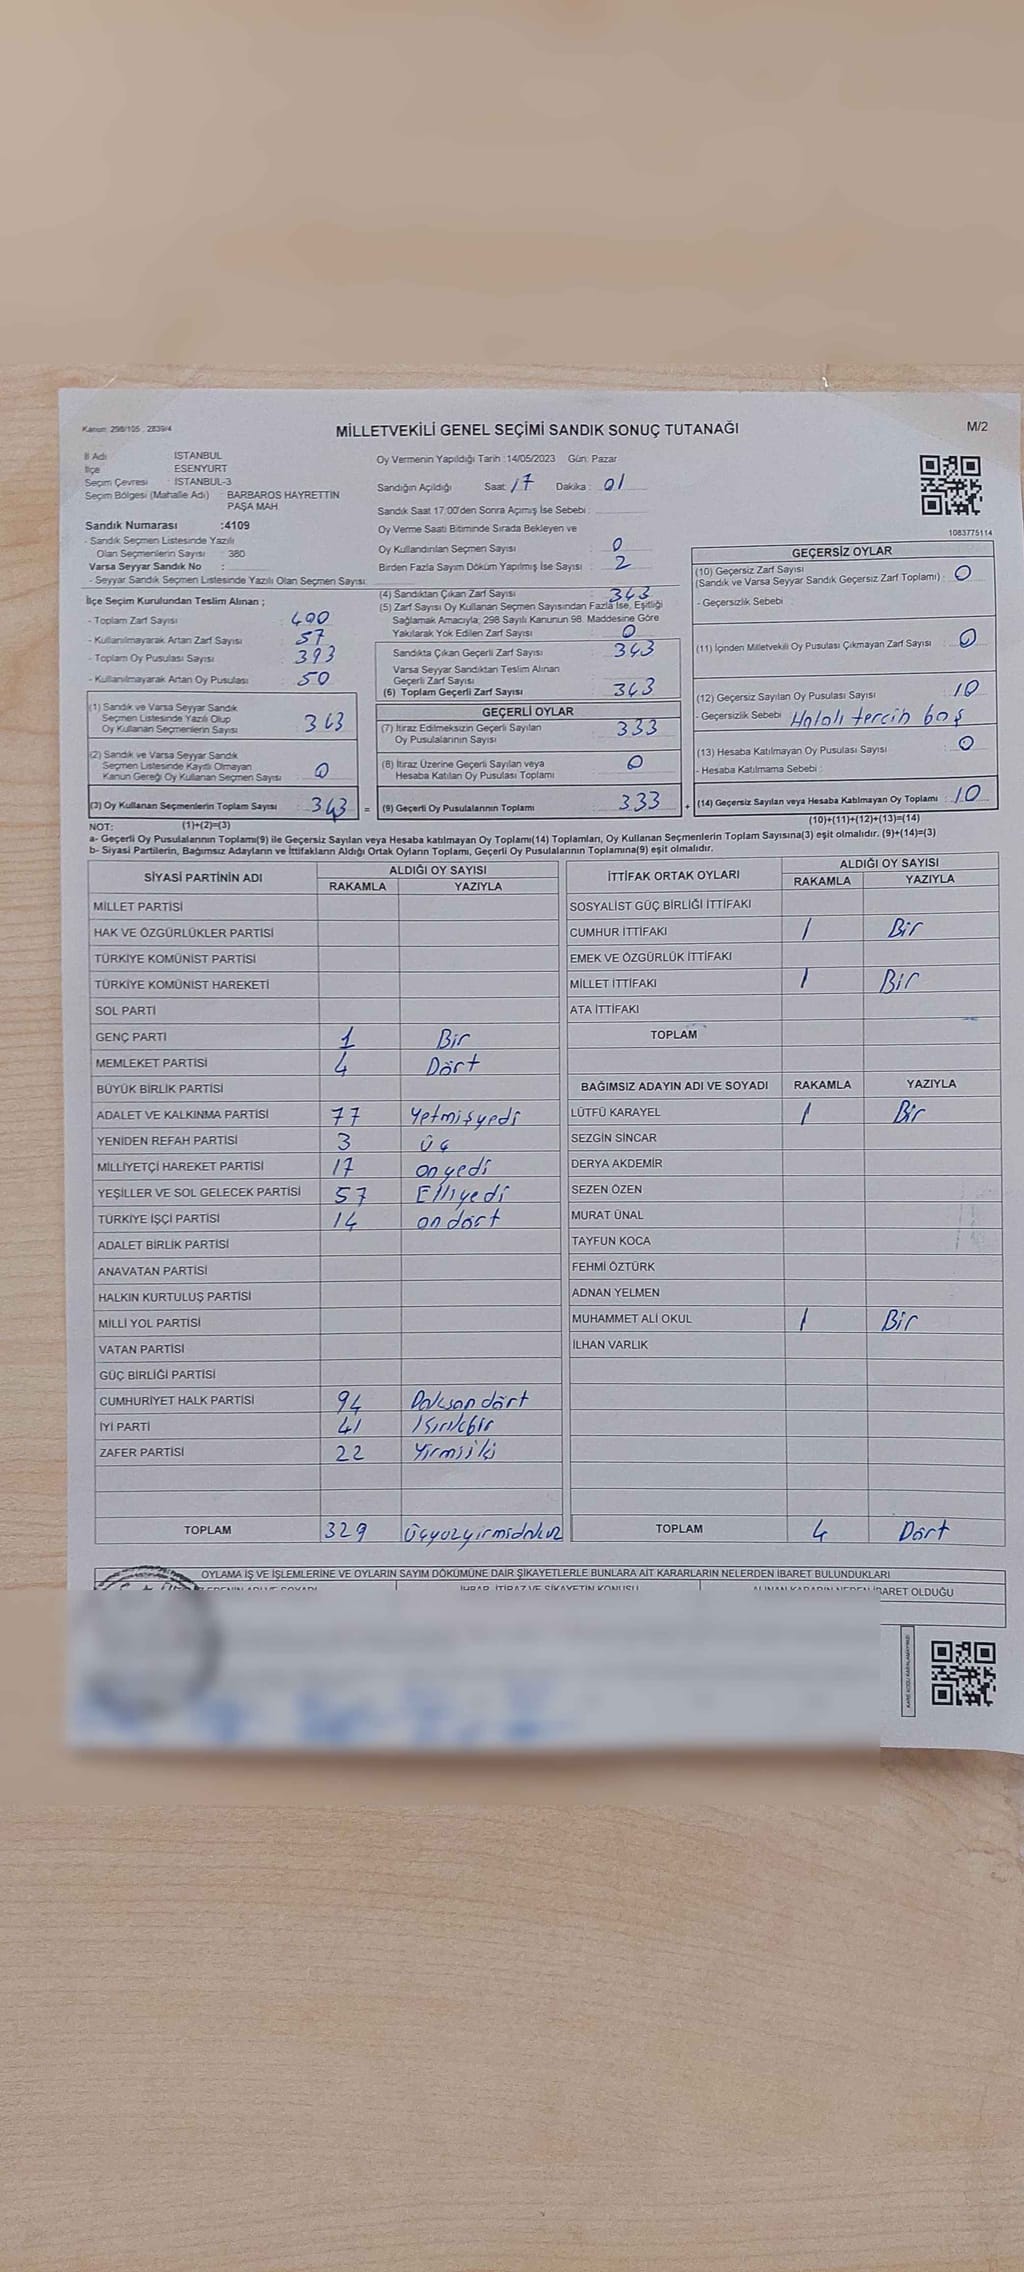 Kanun: 298/105 , 2839/4
MİLLETVEKİLİ GENEL SEÇİMİ SANDIK SONUÇ TUTANAĞI
M/2
İl Adı İSTANBUL
İlçe ESENYURT
Seçim Çevresi : İSTANBUL-3
Seçim Bölgesi (Mahalle Adı) : BARBAROS HAYRETTİN PAŞA MAH
Sandık Numarası :4109
- Sandık Seçmen Listesinde Yazılı
Olan Seçmenlerin Sayısı : 380
Varsa Seyyar Sandık No :
- Seyyar Sandık Seçmen Listesinde Yazılı Olan Seçmen Sayısı:
Oy Vermenin Yapıldığı Tarih :14/05/2023 Gün: Pazar
Sandığın Açıldığı Saat: 17 Dakika : 01
Sandık Saat 17:00'den Sonra Açımış İse Sebebi :
Oy Verme Saati Bitiminde Sırada Bekleyen ve
Oy Kullandırılan Seçmen Sayısı : 0
Birden Fazla Sayım Döküm Yapılmış İse Sayısı : 2
1083775114
İlçe Seçim Kurulundan Teslim Alınan ;
- Toplam Zarf Sayısı : 400
- Kullanılmayarak Artan Zarf Sayısı : 57
- Toplam Oy Pusulası Sayısı : 393
- Kullanılmayarak Artan Oy Pusulası : 50
(1) Sandık ve Varsa Seyyar Sandık
Seçmen Listesinde Yazılı Olup
Oy Kullanan Seçmenlerin Sayısı : 343
(2) Sandık ve Varsa Seyyar Sandık
Seçmen Listesinde Kayıtlı Olmayan
Kanun Gereği Oy Kullanan Seçmen Sayısı : 0
(3) Oy Kullanan Seçmenlerin Toplam Sayısı : 343 =
(1)+(2)=(3)
(4) Sandıktan Çıkan Zarf Sayısı : 343
(5) Zarf Sayısı Oy Kullanan Seçmen Sayısından Fazla İse, Eşitliği
Sağlamak Amacıyla, 298 Sayılı Kanunun 98. Maddesine Göre
Yakılarak Yok Edilen Zarf Sayısı : 0
Sandıkta Çıkan Geçerli Zarf Sayısı : 343
Varsa Seyyar Sandıktan Teslim Alınan
Geçerli Zarf Sayısı :
(6) Toplam Geçerli Zarf Sayısı : 343
GEÇERLİ OYLAR
(7) İtiraz Edilmeksizin Geçerli Sayılan
Oy Pusulalarının Sayısı : 333
(8) İtiraz Üzerine Geçerli Sayılan veya
Hesaba Katılan Oy Pusulası Toplamı : 0
(9) Geçerli Oy Pusulalarının Toplamı : 333 +
GEÇERSİZ OYLAR
(10) Geçersiz Zarf Sayısı
(Sandık ve Varsa Seyyar Sandık Geçersiz Zarf Toplamı) : 0
- Geçersizlik Sebebi :
(11) İçinden Milletvekili Oy Pusulası Çıkmayan Zarf Sayısı : 0
(12) Geçersiz Sayılan Oy Pusulası Sayısı : 10
- Geçersizlik Sebebi : Hatalı tercih boş
(13) Hesaba Katılmayan Oy Pusulası Sayısı : 0
- Hesaba Katılmama Sebebi :
(14) Geçersiz Sayılan veya Hesaba Katılmayan Oy Toplamı : 10
(10)+(11)+(12)+(13)=(14)
NOT:
a- Geçerli Oy Pusulalarının Toplamı(9) ile Geçersiz Sayılan veya Hesaba katılmayan Oy Toplamı(14) Toplamları, Oy Kullanan Seçmenlerin Toplam Sayısına(3) eşit olmalıdır. (9)+(14)=(3)
b- Siyasi Partilerin, Bağımsız Adayların ve İttifakların Aldığı Ortak Oyların Toplamı, Geçerli Oy Pusulalarının Toplamına(9) eşit olmalıdır.
SİYASİ PARTİNİN ADI ALDIĞI OY SAYISI
RAKAMLA YAZIYLA
MİLLET PARTİSİ
HAK VE ÖZGÜRLÜKLER PARTİSİ
TÜRKİYE KOMÜNİST PARTİSİ
TÜRKİYE KOMÜNİST HAREKETİ
SOL PARTİ
GENÇ PARTİ 1 Bir
MEMLEKET PARTİSİ 4 Dört
BÜYÜK BİRLİK PARTİSİ
ADALET VE KALKINMA PARTİSİ 77 Yetmişyedi
YENİDEN REFAH PARTİSİ 3 Üç
MİLLİYETÇİ HAREKET PARTİSİ 17 onyedi
YEŞİLLER VE SOL GELECEK PARTİSİ 57 Elliyedi
TÜRKİYE İŞÇİ PARTİSİ 14 on dört
ADALET BİRLİK PARTİSİ
ANAVATAN PARTİSİ
HALKIN KURTULUŞ PARTİSİ
MİLLİ YOL PARTİSİ
VATAN PARTİSİ
GÜÇ BİRLİĞİ PARTİSİ
CUMHURİYET HALK PARTİSİ 94 Doksan dört
İYİ PARTİ 41 Kırkbir
ZAFER PARTİSİ 22 Yirmiiki
TOPLAM 329 Üçyüzyirmidokuz
İTTİFAK ORTAK OYLARI ALDIĞI OY SAYISI
RAKAMLA YAZIYLA
SOSYALİST GÜÇ BİRLİĞİ İTTİFAKI
CUMHUR İTTİFAKI 1 Bir
EMEK VE ÖZGÜRLÜK İTTİFAKI
MİLLET İTTİFAKI 1 Bir
ATA İTTİFAKI
TOPLAM
BAĞIMSIZ ADAYIN ADI VE SOYADI RAKAMLA YAZIYLA
LÜTFÜ KARAYEL 1 Bir
SEZGİN SİNCAR
DERYA AKDEMİR
SEZEN ÖZEN
MURAT ÜNAL
TAYFUN KOCA
FEHMİ ÖZTÜRK
ADNAN YELMEN
MUHAMMET ALİ OKUL 1 Bir
İLHAN VARLIK
TOPLAM 4 Dört
OYLAMA İŞ VE İŞLEMLERİNE VE OYLARIN SAYIM DÖKÜMÜNE DAİR ŞİKAYETLERLE BUNLARA AİT KARARLARIN NELERDEN İBARET BULUNDUKLARI
İHBAR, İTİRAZ VE ŞİKAYETİN KONUSU ALINAN KARARIN NEDEN İBARET OLDUĞU